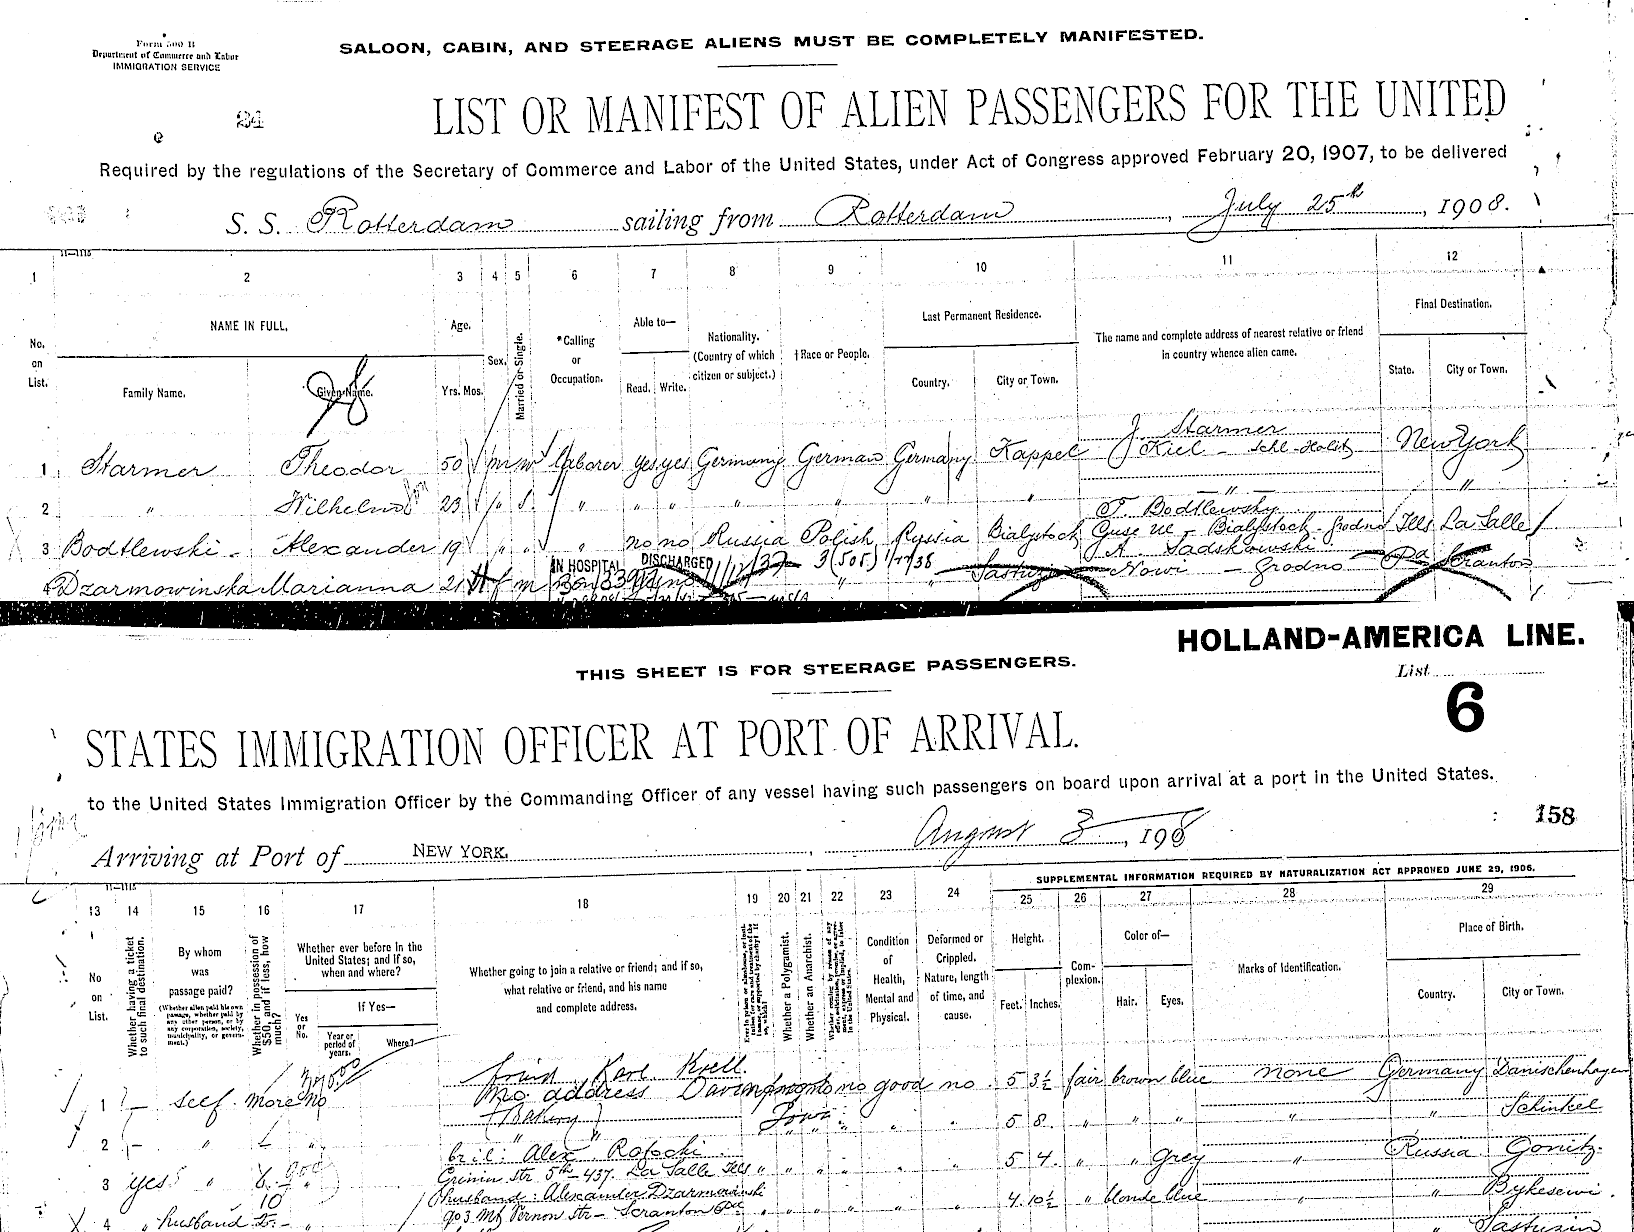 Form 500 B
Department of Commerce and Labor
IMMIGRATION SERVICE
SALOON, CABIN, AND STEERAGE ALIENS MUST BE COMPLETELY MANIFESTED.
24
LIST OR MANIFEST OF ALIEN PASSENGERS FOR THE UNITED
Required by the regulations of the Secretary of Commerce and Labor of the United States, under Act of Congress approved February 20, 1907, to be delivered
S. S. Rotterdam sailing from Rotterdam, July 25th, 1908.
11—1115
1 2 3 4 5 6 7 8 9 10 11 12
No. on List.
NAME IN FULL.
Family Name. Given Name.
Age.
Yrs. Mos.
Sex.
Married or Single.
*Calling or Occupation.
Able to—
Read. Write.
Nationality. (Country of which citizen or subject.)
†Race or People.
Last Permanent Residence.
Country. City or Town.
The name and complete address of nearest relative or friend in country whence alien came.
Final Destination.
State. City or Town.
1 Starmer Theodor 50 m laborer yes yes Germany German Germany Kappel J. Starmer Kiel New York
2 " Wilhelm son 23 " s " " " " " " " " "
3 Bodtlewski Alexander 19 " " " no no Russia Polish Russia Bialystock T. Bodtlewsky Bialystock Grodno Ills La Salle
Dzarmowinska Marianna 21 f m A. Sadskowski Nowi - Grodno Pa Scranton
IN HOSPITAL DISCHARGED
3 (505)
HOLLAND-AMERICA LINE.
THIS SHEET IS FOR STEERAGE PASSENGERS.
List
6
STATES IMMIGRATION OFFICER AT PORT OF ARRIVAL.
to the United States Immigration Officer by the Commanding Officer of any vessel having such passengers on board upon arrival at a port in the United States.
158
Arriving at Port of NEW YORK, August 3, 1908
11—1115
SUPPLEMENTAL INFORMATION REQUIRED BY NATURALIZATION ACT APPROVED JUNE 29, 1906.
13 14 15 16 17 18 19 20 21 22 23 24 25 26 27 28 29
No on List.
Whether having a ticket to such final destination.
By whom was passage paid?
(Whether alien paid his own passage, whether paid by any other person, or by any corporation, society, municipality, or government.)
Whether in possession of $50, and if less, how much?
Whether ever before in the United States; and if so, when and where?
Yes or No.
If Yes—
Year or period of years. Where?
Whether going to join a relative or friend; and if so, what relative or friend, and his name and complete address.
Whether a Polygamist.
Whether an Anarchist.
Condition of Health, Mental and Physical.
Deformed or Crippled. Nature, length of time, and cause.
Height.
Feet. Inches.
Complexion.
Color of—
Hair. Eyes.
Marks of Identification.
Place of Birth.
Country. City or Town.
1 — self more no friend Karl Krell. no address Davenport Iowa no no good no 5 3½ fair brown blue none Germany Danischenhagen
2 — " " (Bakery) " " " " 5 8 " " " " " Schinkel
3 yes " 6 bril: Alex Rofocki Str 5th 437. La Salle Ills " " " " " " 5 4 " " Grey " Russia Gonitz.
4 " husband 10 husband: Alexander Dzarmowinski 903 Mt Vernon Str - Scranton Pa " " " " " " 4 10½ " blonde blue " " Bykesewi.
Sastuzin